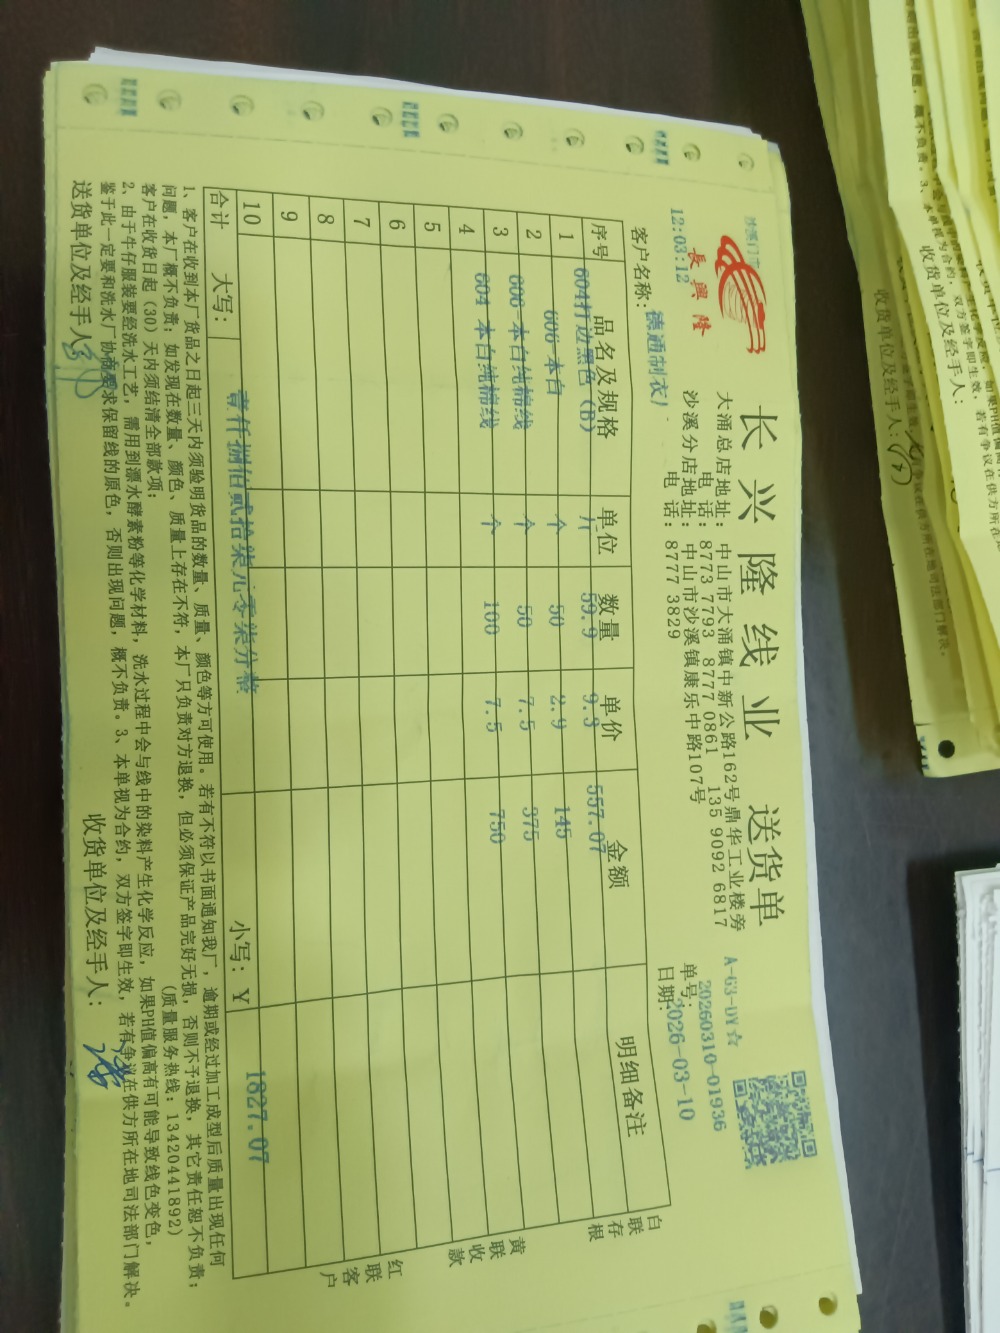 长兴隆线业 送货单
沙溪门市
長興隆
12:03:12
大涌总店地址：中山市大涌镇中新公路162号鼎华工业楼旁
电话：8773 7793 8777 0861 135 9092 6817
沙溪分店地址：中山市沙溪镇康乐中路107号
电话：8777 3829
A-63-DY☆
单号：20260310-01936
日期：2026-03-10
客户名称：德通制衣厂
序号 品名及规格 单位 数量 单价 金额 明细备注
1 604打边黑色（B） 斤 59.9 9.3 557.07
2 606 本白 个 50 2.9 145
3 606 本白纯棉线 个 50 7.5 375
4 604 本白纯棉线 个 100 7.5 750
5
6
7
8
9
10
合计 大写：壹仟捌佰贰拾柒元零柒分整 小写：￥ 1827.07
白联存根
黄联收款
红联客户
1、客户在收到本厂货品之日起三天内须验明货品的数量、质量、颜色等方可使用。若有不符以书面通知我厂，逾期或经过加工成型后质量出现任何
问题，本厂概不负责；如发现在数量、颜色、质量上存在不符，本厂只负责对方退换，但必须保证产品完好无损，否则不予退换，其它责任恕不负责；
客户在收货日起（30）天内须结清全部款项；（质量服务热线：13420441892）
2、由于牛仔服装要经洗水工艺，需用到漂水酵素粉等化学材料，洗水过程中会与线中的染料产生化学反应，如果PH值偏高有可能导致线色变色，
鉴于此一定要和洗水厂协商要求保留线的原色，否则出现问题，概不负责。3、本单视为合约，双方签字即生效，若有争议在供方所在地司法部门解决。
送货单位及经手人：
收货单位及经手人：
收货单位及经手人：
收货单位及经手人：